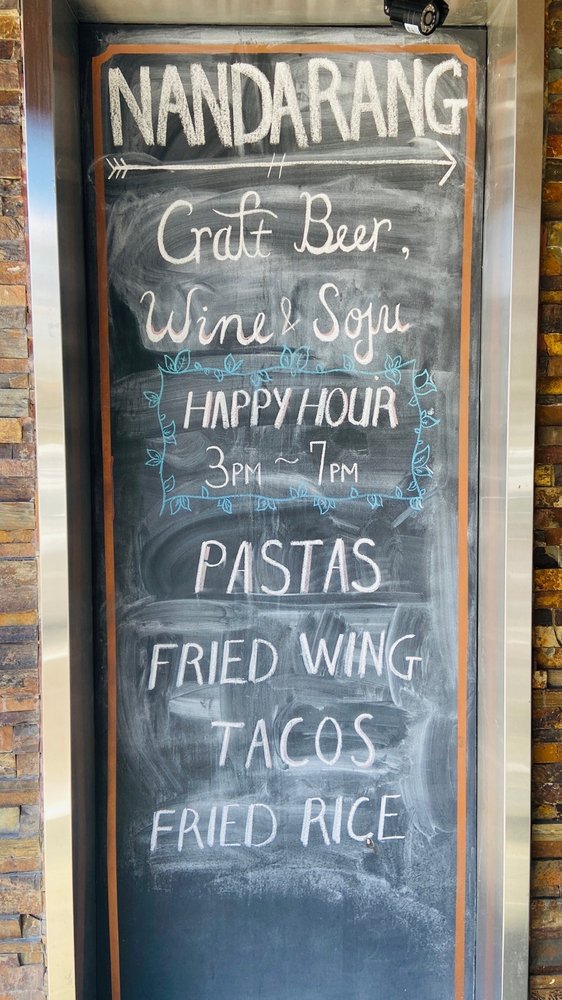 NANDARANG
Craft Beer,
Wine & Soju
HAPPY HOUR
3PM ~ 7PM
PASTAS
FRIED WING
TACOS
FRIED RICE